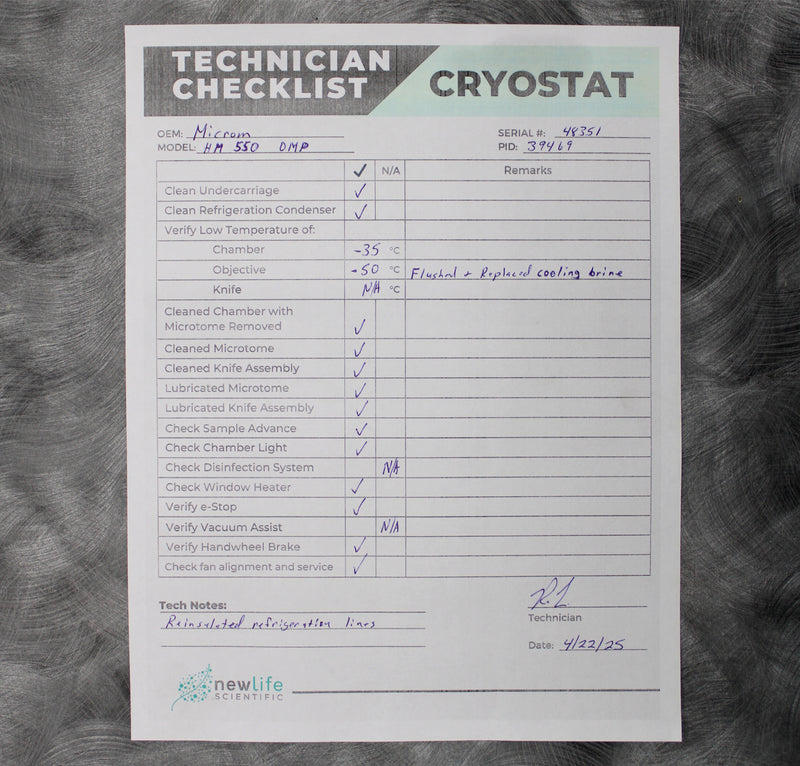 TECHNICIAN
CHECKLIST
CRYOSTAT
OEM: Microm
SERIAL #: 48351
MODEL: HM 550 OMP
PID: 39469
✓ N/A Remarks
Clean Undercarriage ✓
Clean Refrigeration Condenser ✓
Verify Low Temperature of:
Chamber -35 °C
Objective -50 °C Flushed + Replaced cooling brine
Knife N/A °C
Cleaned Chamber with
Microtome Removed ✓
Cleaned Microtome ✓
Cleaned Knife Assembly ✓
Lubricated Microtome ✓
Lubricated Knife Assembly ✓
Check Sample Advance ✓
Check Chamber Light ✓
Check Disinfection System N/A
Check Window Heater ✓
Verify e-Stop ✓
Verify Vacuum Assist N/A
Verify Handwheel Brake ✓
Check fan alignment and service ✓
Tech Notes:
Reinsulated refrigeration lines
Technician
Date: 4/22/25
newlife
SCIENTIFIC